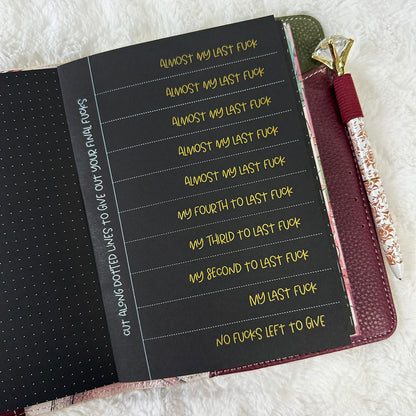 CUT ALONG DOTTED LINES TO GIVE OUT YOUR FINAL FUCKS
ALMOST MY LAST FUCK
ALMOST MY LAST FUCK
ALMOST MY LAST FUCK
ALMOST MY LAST FUCK
ALMOST MY LAST FUCK
MY FOURTH TO LAST FUCK
MY THIRLD TO LAST FUCK
MY SECOND TO LAST FUCK
MY LAST FUCK
NO FUCKS LEFT TO GIVE